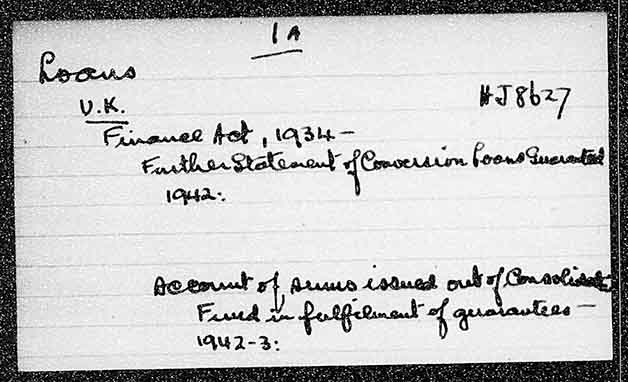 1A
Loans
U.K.
HJ8627
Finance Act, 1934 —
Further Statement of Conversion Loans Guaranteed
1942:
Account of sums issued out of Consolidated
Fund in fulfilment of guarantees —
1942-3: